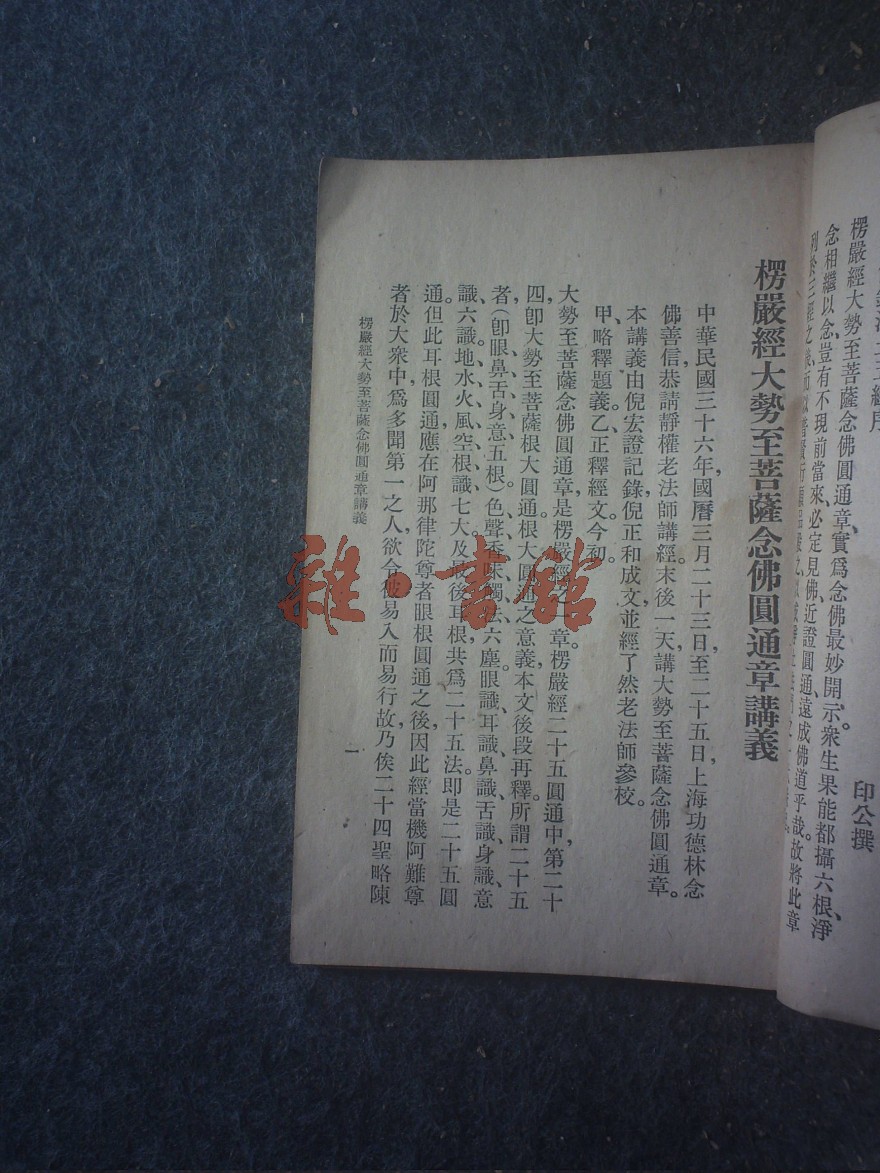 印公撰
楞嚴經大勢至菩薩念佛圓通章、實爲念佛最妙開示。衆生果能都攝六根、淨
念相繼以念豈有不現前當來必定見佛近證圓通、遠成佛道乎哉。故將此章
楞嚴經大勢至菩薩念佛圓通章講義
中華民國三十六年、國曆三月二十三日至二十五日、上海功德林念
佛善信恭請靜權老法師講經、末後一天、講大勢至菩薩念佛圓通章。
本講義由倪宏證記錄、倪正和成文、並經了然老法師參校。
甲、略釋題義、乙、正釋經文。今初。
大勢至菩薩念佛圓通章、是楞嚴經之一章、楞嚴經二十五圓通中、第二十
四、卽大勢至菩薩根大圓通、根大圓通之意義、本文後段再釋。所謂二十五
者、（卽眼、鼻、舌、身、意五根）色、聲、香、味、觸、法六塵、眼識、耳識、鼻識、舌識、身識、意
識、六識、地、水、火、風、空、根、識七大、及最後耳根、共爲二十五法、即是二十五圓
通。但此耳根圓通、應在阿那律陀尊者眼根圓通之後、因此經當機阿難尊
者、於大衆中、爲多聞第一之人、欲令彼易入而易行故、乃俟二十四聖略陳
楞嚴經大勢至菩薩念佛圓通章講義
一
雜·書館